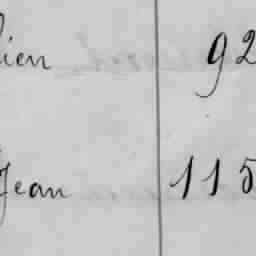 ien 92
Jean 115